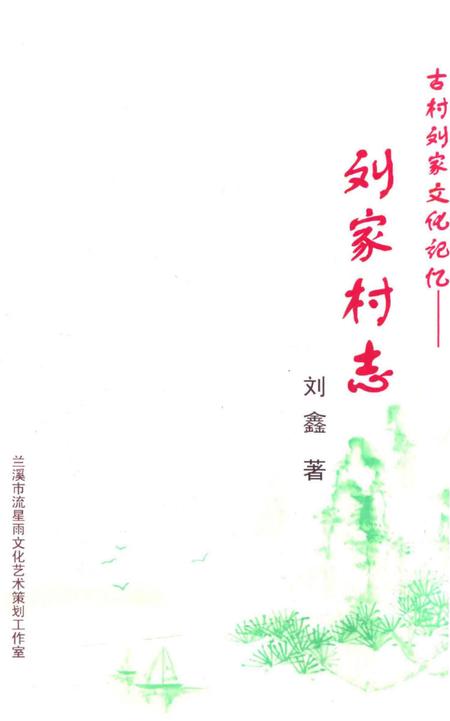 古村刘家文化记忆——
刘家村志
刘鑫 著
兰溪市流星雨文化艺术策划工作室